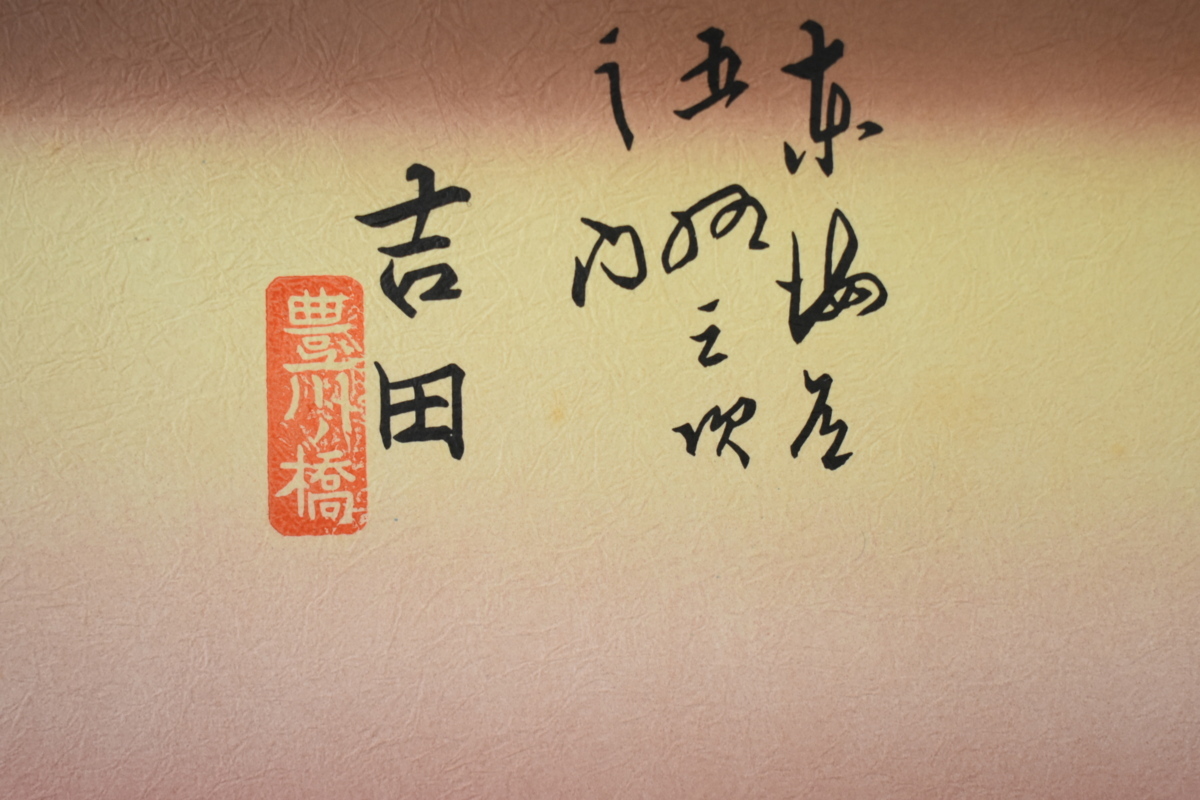 東海道
五拾三次
之内
吉田
豊川ノ橋